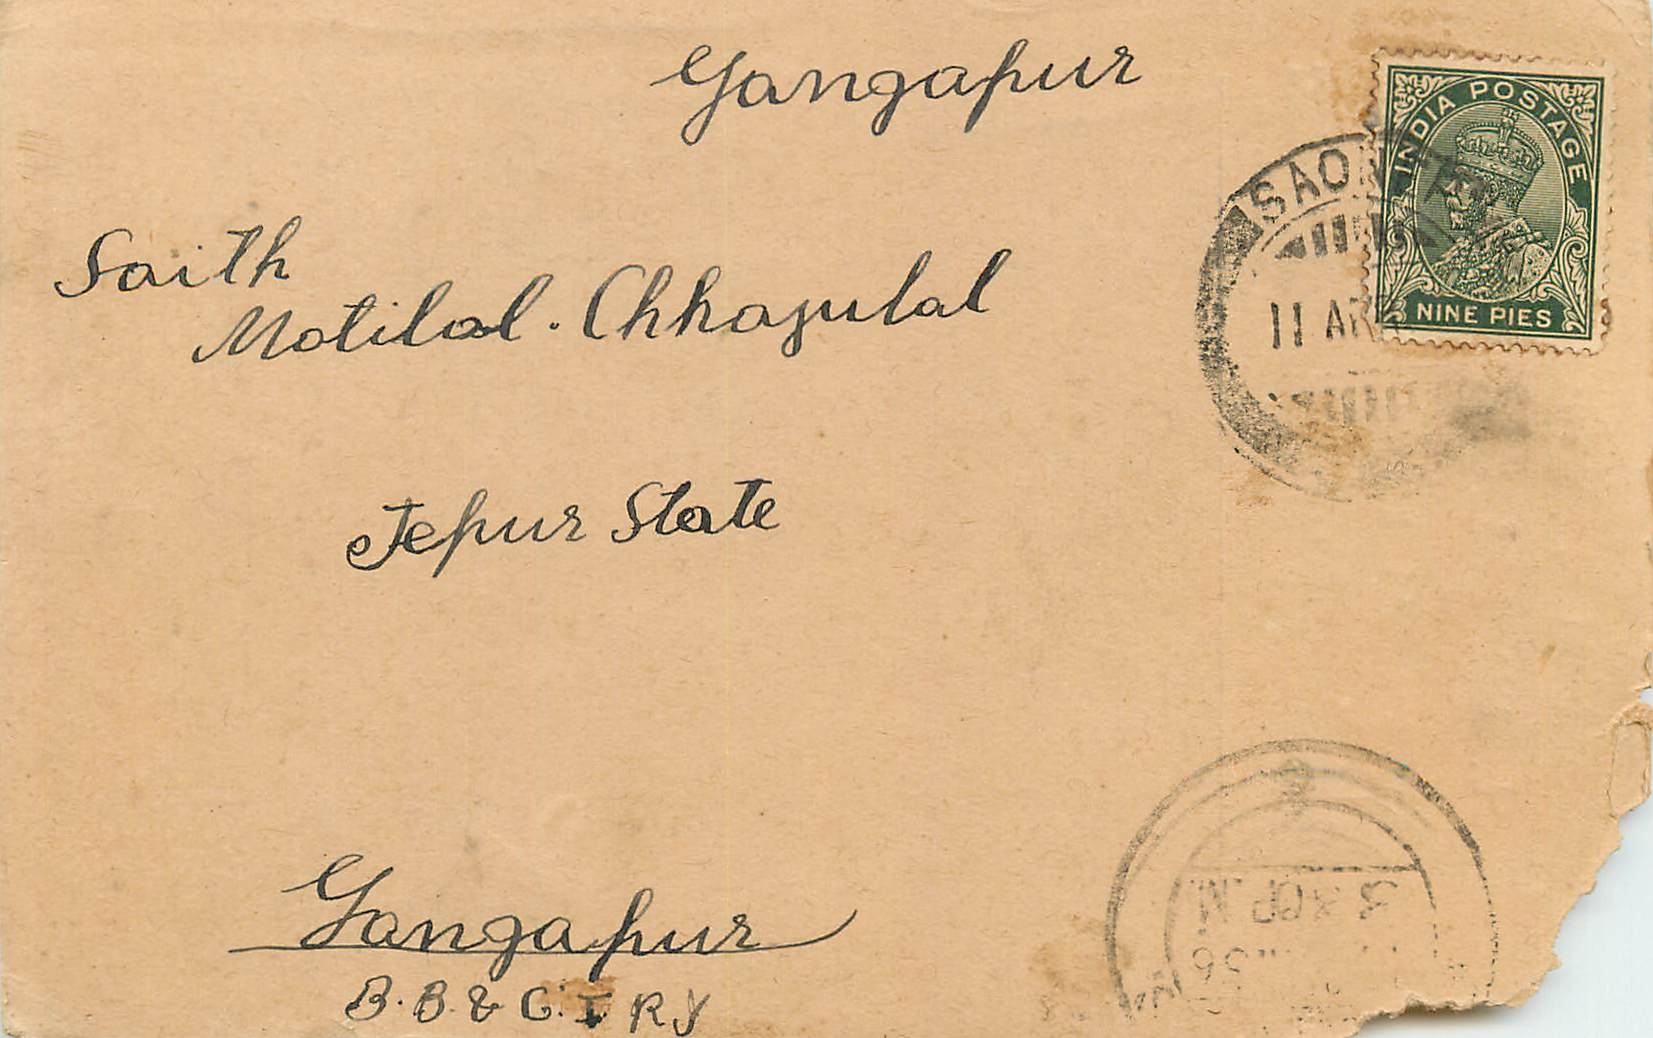 Gangapur
INDIA POSTAGE
NINE PIES
11 AP
Saith
Motilal. Chhajulal
Jepur State
Gangapur
B. B. & C. I RY
3.30P.M.
36